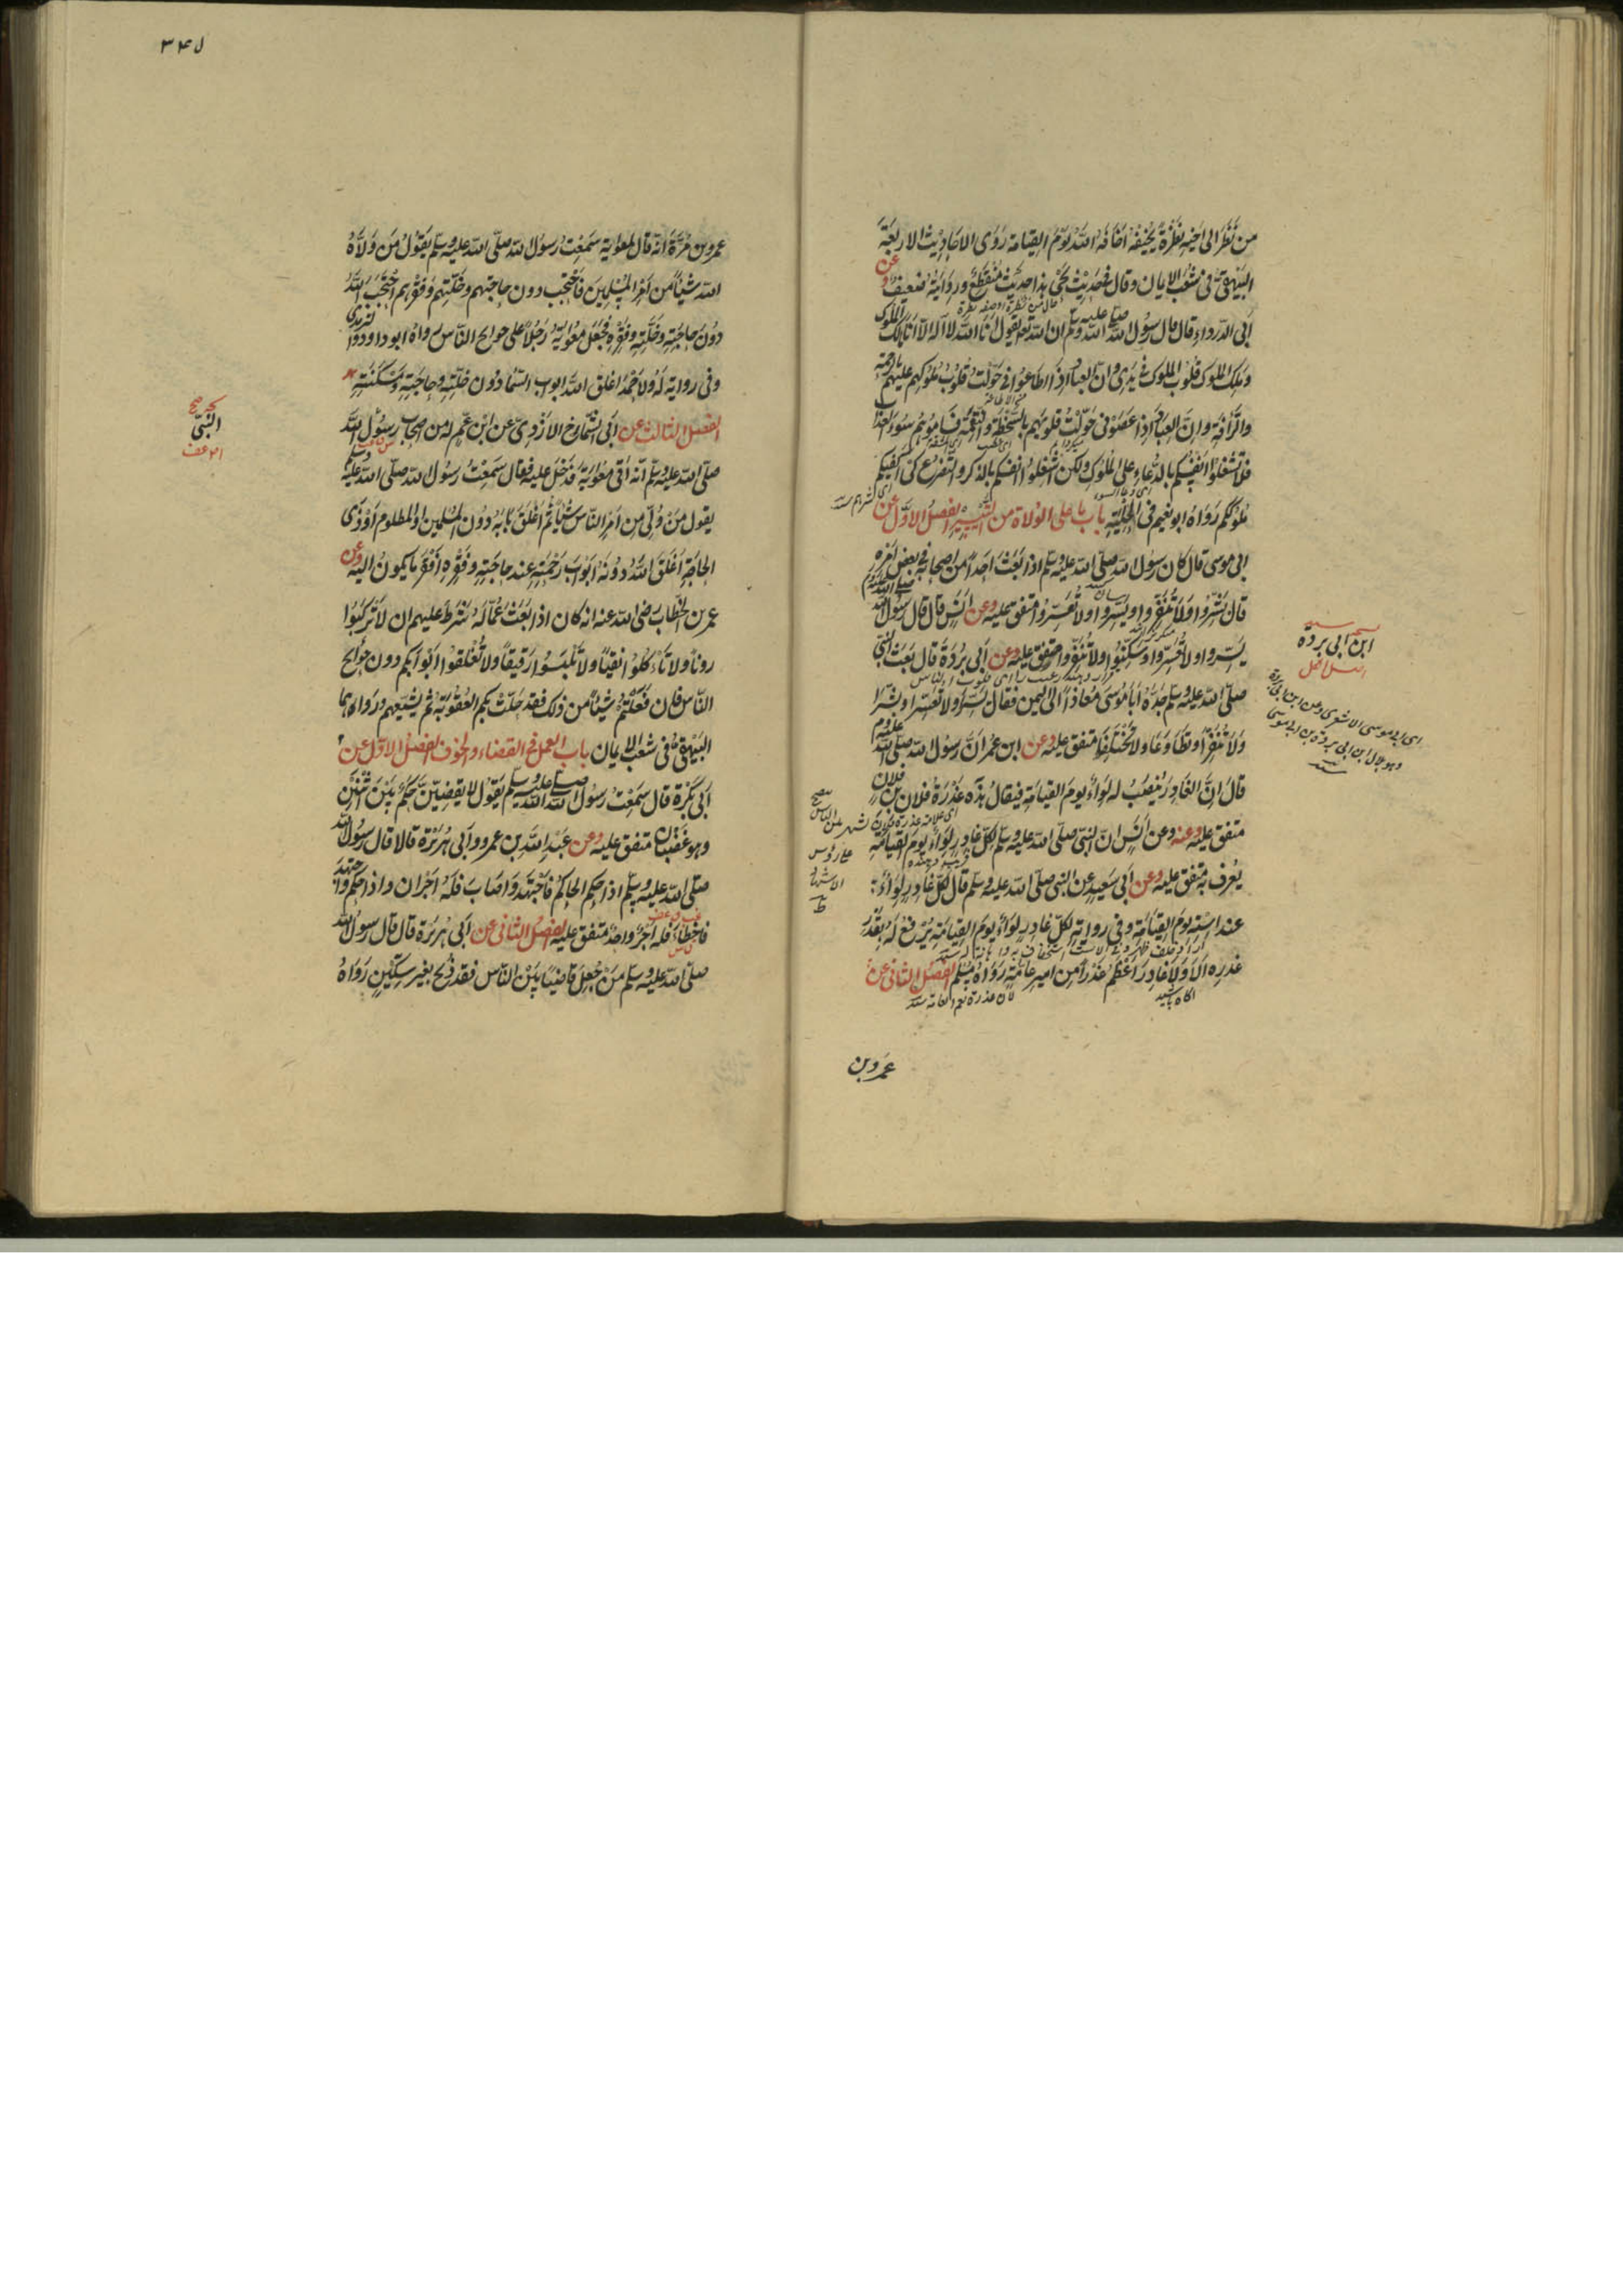 من نظر الى اخيه نظرة يخيفه اخافه الله يوم القيامة روى الاحاديث الاربعة
البيهقي فى شعب الايمان وقال فى حديث يحيى هذا حديث منقطع ورواية ضعيف وعن
ابى الدرداء قال قال رسول الله صلى الله عليه وسلم ان الله تعالى يقول انا الله لا اله الا انا مالك الملوك
وملك الملوك قلوب الملوك فى يدى وان العباد اذا اطاعونى حولت قلوب ملوكهم عليهم بالرحمة
والرأفة وان العباد اذا عصونى حولت قلوبهم بالسخطة والنقمة فساموهم سوء العذاب
فلا تشغلوا انفسكم بالدعاء على الملوك ولكن اشغلوا انفسكم بالذكر والتضرع كى اكفيكم
ملوككم رواه ابو نعيم فى الحلية باب ما على الولاة من التيسير الفصل الاول عن
ابى موسى قال كان رسول الله صلى الله عليه وسلم اذا بعث احدا من اصحابه فى بعض امره
قال بشروا ولا تنفروا ويسروا ولا تعسروا متفق عليه وعن انس قال قال رسول الله صلى الله عليه وسلم
يسروا ولا تعسروا وسكنوا ولا تنفروا متفق عليه وعن ابى بردة قال بعث النبى
صلى الله عليه وسلم جده ابا موسى ومعاذا الى اليمن فقال يسرا ولا تعسرا وبشرا
ولا تنفرا وتطاوعا ولا تختلفا متفق عليه وعن ابن عمر ان رسول الله صلى الله عليه وسلم
قال ان الغادر ينصب له لواء يوم القيامة فيقال هذه غدرة فلان بن فلان
متفق عليه وعنه وعن انس ان النبى صلى الله عليه وسلم لكل غادر لواء يوم القيامة
يعرف به متفق عليه وعن ابى سعيد عن النبى صلى الله عليه وسلم قال لكل غادر لواء
عند استه يوم القيامة وفى رواية لكل غادر لواء يوم القيامة يرفع له بقدر
غدره الا ولا غادر اعظم غدرا من امير عامة رواه مسلم الفصل الثانى عن
عمرو بن
ابن ابى بردة
اى ابى موسى الاشعرى وعن ابن ابى بردة
وهو بلال ابن ابى بردة بن ابى موسى
٣٤٥
عمرو بن مرة انه قال لمعوية سمعت رسول الله صلى الله عليه وسلم يقول من ولاه
الله شيئا من امر المسلمين فاحتجب دون حاجتهم وخلتهم وفقرهم احتجب الله
دون حاجته وخلته وفقره فجعل معوية رجلا على حوايج الناس رواه ابو داود والترمذى
وفى رواية له ولاحمد اغلق الله ابواب السماء دون خلته وحاجته ومسكنته
الفصل الثالث عن ابى الشماخ الازدى عن ابن عم له من اصحاب رسول الله
صلى الله عليه وسلم انه اتى معوية فدخل عليه فقال سمعت رسول الله صلى الله عليه وسلم
يقول من ولى من امر الناس شيئا ثم اغلق بابه دون المسلمين او المظلوم او ذى
الحاجة اغلق الله دونه ابواب رحمته عند حاجته وفقره افقر ما يكون اليه وعن
عمر بن الخطاب رضى الله عنه انه كان اذا بعث عماله شرط عليهم ان لا تركبوا
برذونا ولا تأكلوا نقيا ولا تلبسوا رقيقا ولا تغلقوا ابوابكم دون حوايج
الناس فان فعلتم شيئا من ذلك فقد حلت بكم العقوبة ثم يشيعهم رواهما
البيهقى فى شعب الايمان باب العمل فى القضاء والخوف الفصل الاول عن
ابى بكرة قال سمعت رسول الله صلى الله عليه وسلم يقول لا يقضين حكم بين اثنين
وهو غضبان متفق عليه وعن عبد الله بن عمرو وابى هريرة قالا قال رسول الله
صلى الله عليه وسلم اذا حكم الحاكم فاجتهد واصاب فله اجران واذا حكم واجتهد
فاخطأ فله اجر واحد متفق عليه الفصل الثانى عن ابى هريرة قال قال رسول الله
صلى الله عليه وسلم من جعل قاضيا بين الناس فقد ذبح بغير سكين رواه
النبى